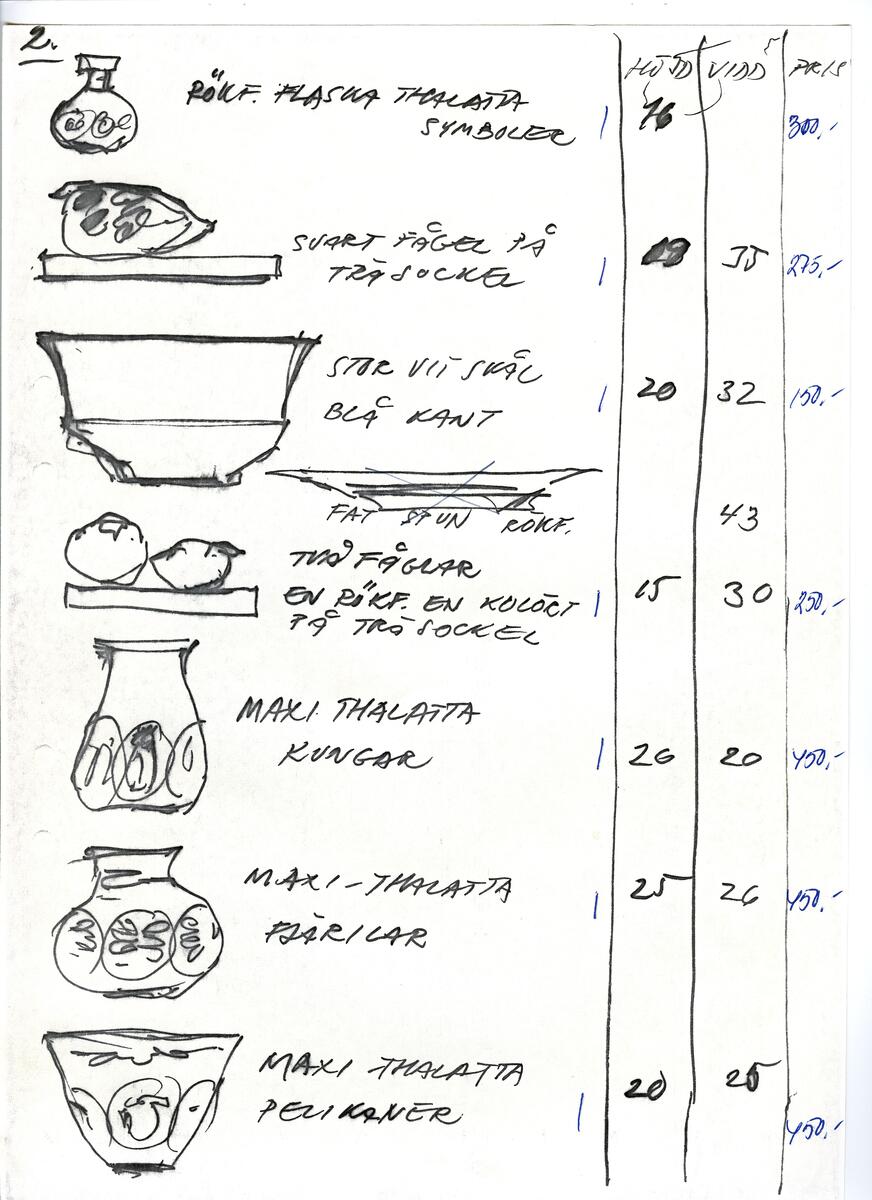 2.
HÖJD VIDD PRIS
RÖKF. FLASKA THALATTA
SYMBOLER 1 300,-
SVART FÅGEL PÅ
TRÄSOCKEL 1 35 275,-
STOR VIT SKÅL
BLÅ KANT 1 20 32 150,-
FAT SPUN RÖKF. 43
TVÅ FÅGLAR
EN RÖKF. EN KULÖRT 1 15 30 250,-
PÅ TRÄSOCKEL
MAXI THALATTA
KUNGAR 1 26 20 450,-
MAXI-THALATTA 25 26
FJÄRILAR 1 450,-
MAXI-THALATTA 20 25
PELIKANER 1 450,-